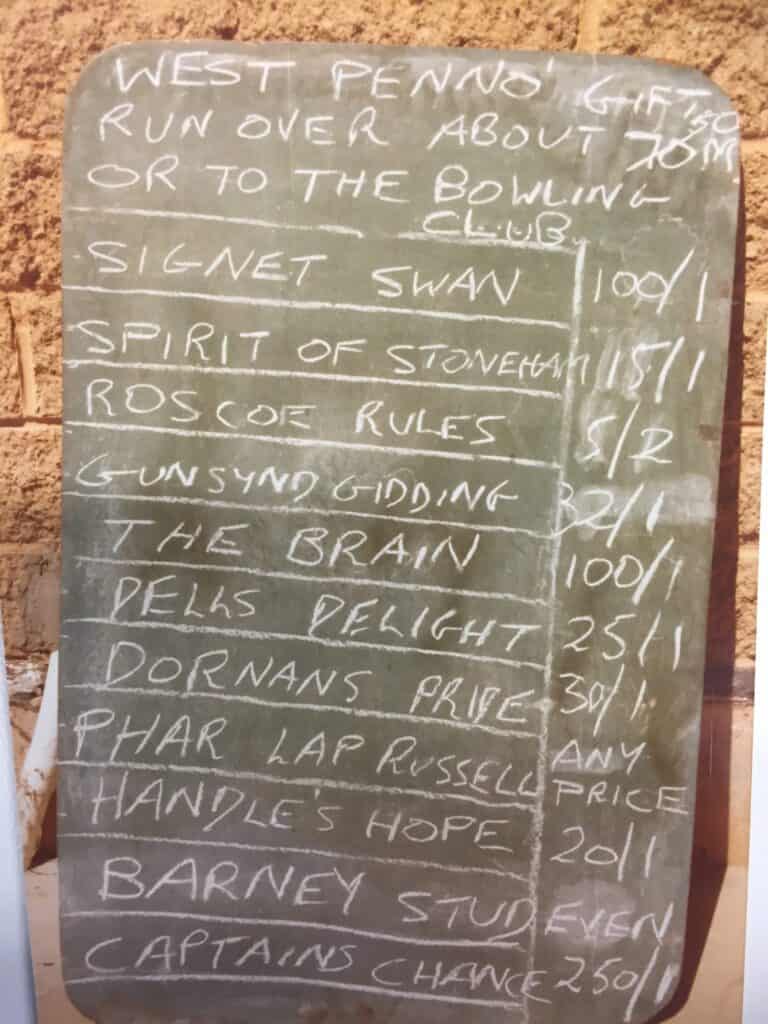 WEST PENNO' GIFT
RUN OVER ABOUT 70M
OR TO THE BOWLING
CLUB.
SIGNET SWAN 100/1
SPIRIT OF STONEHAM 15/1
ROSCOE RULES 5/2
GUNSYND GIDDING 32/1
THE BRAIN 100/1
DELLS DELIGHT 25/1
DORNANS PRIDE 30/1
PHAR LAP RUSSELL ANY PRICE
HANDLE'S HOPE 20/1
BARNEY STUD EVEN
CAPTAINS CHANCE 250/1